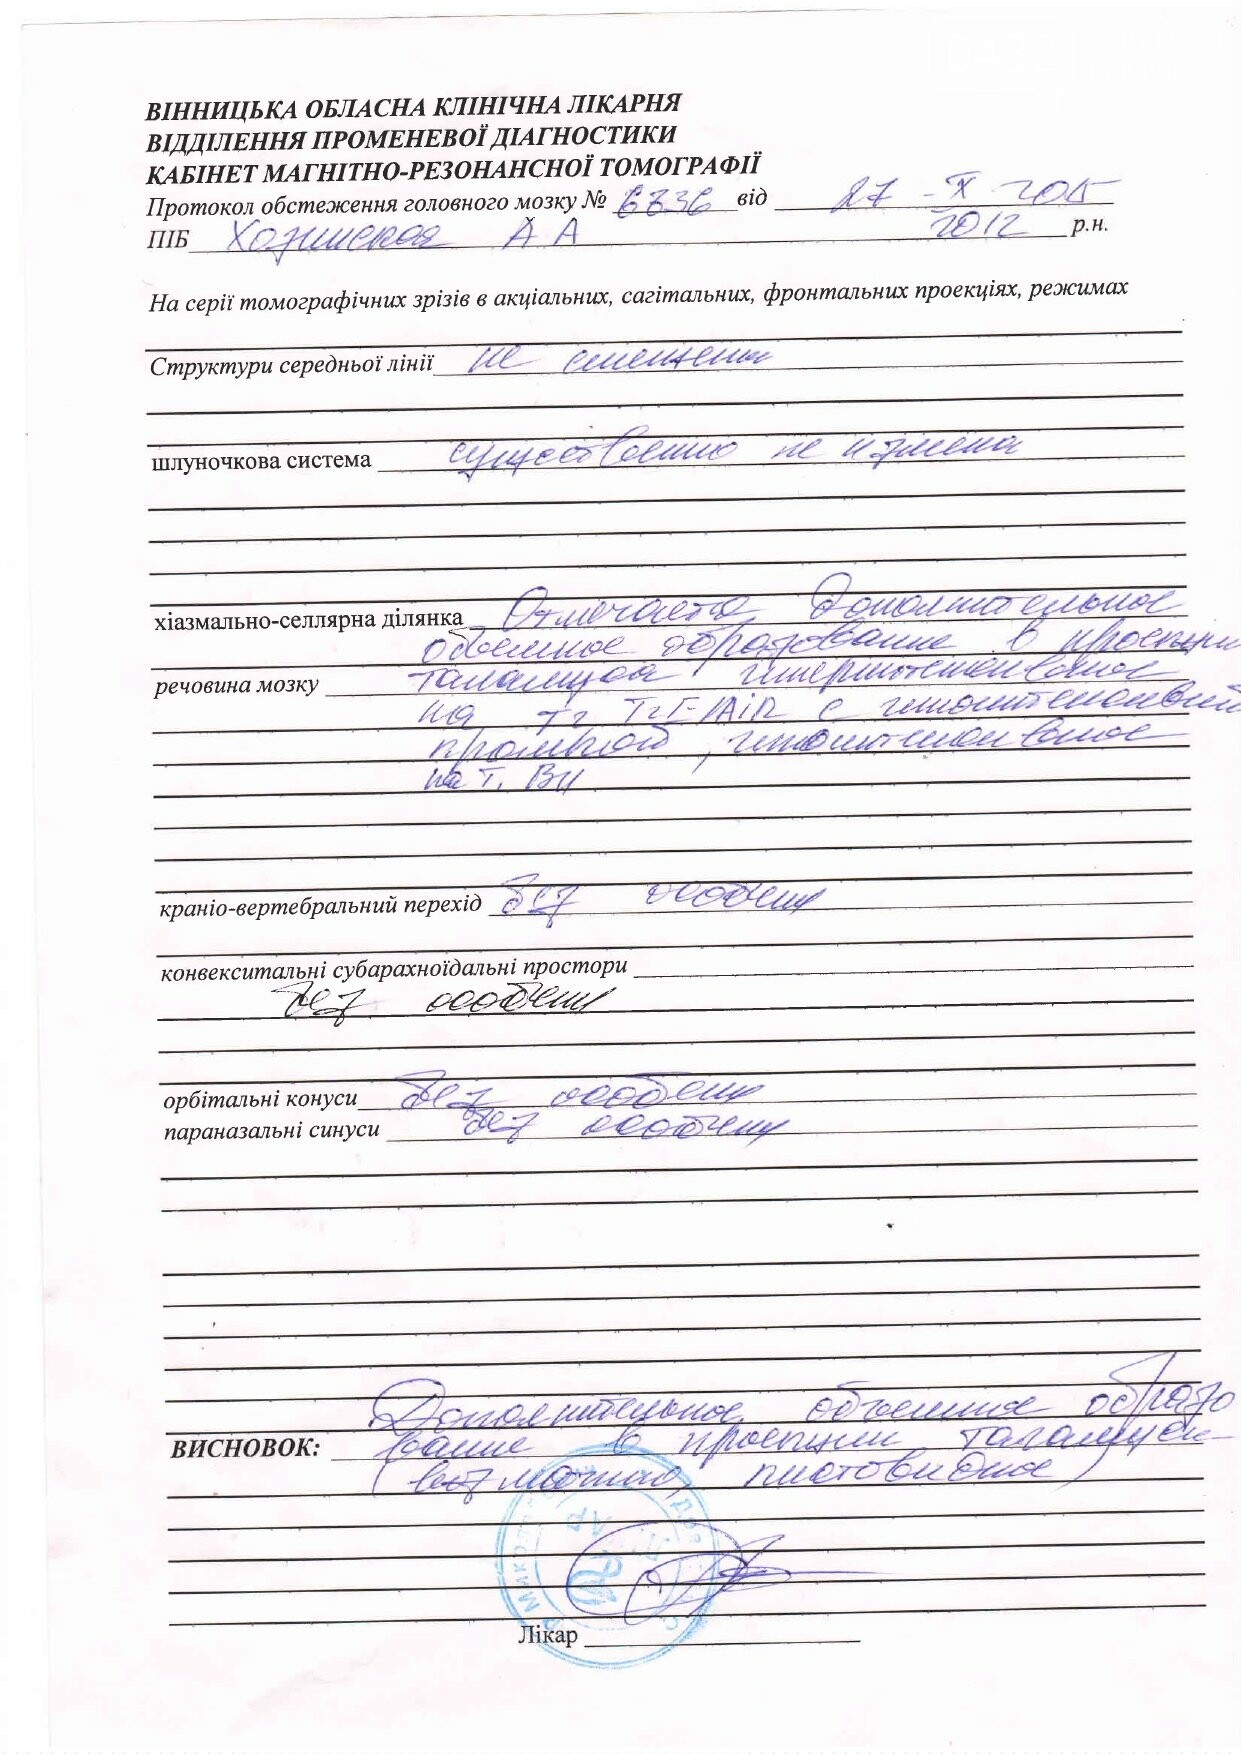 0432
ВІННИЦЬКА ОБЛАСНА КЛІНІЧНА ЛІКАРНЯ
ВІДДІЛЕННЯ ПРОМЕНЕВОЇ ДІАГНОСТИКИ
КАБІНЕТ МАГНІТНО-РЕЗОНАНСНОЇ ТОМОГРАФІЇ
Протокол обстеження головного мозку № 6336 від 27 - X 2015
ПІБ А А 2012 р.н.
На серії томографічних зрізів в акціальних, сагітальних, фронтальних проекціях, режимах
Структури середньої лінії не смещены
шлуночкова система существенно не изменена
хіазмально-селлярна ділянка Отмечается Дополнительное
объемное образование в проекции
речовина мозку таламуса гиперинтенсивное
на T2 T2FLAIR с гипоинтенсивной
, гипоинтенсивное
на T1 ВИ
краніо-вертебральний перехід без особенн
конвекситальні субарахноїдальні простори
без особенн
орбітальні конуси без особенн
параназальні синуси без особенн
Дополнительное объемное образо
ВИСНОВОК: вание в проекции таламуса
(возможно, кистовидное)
Лікар